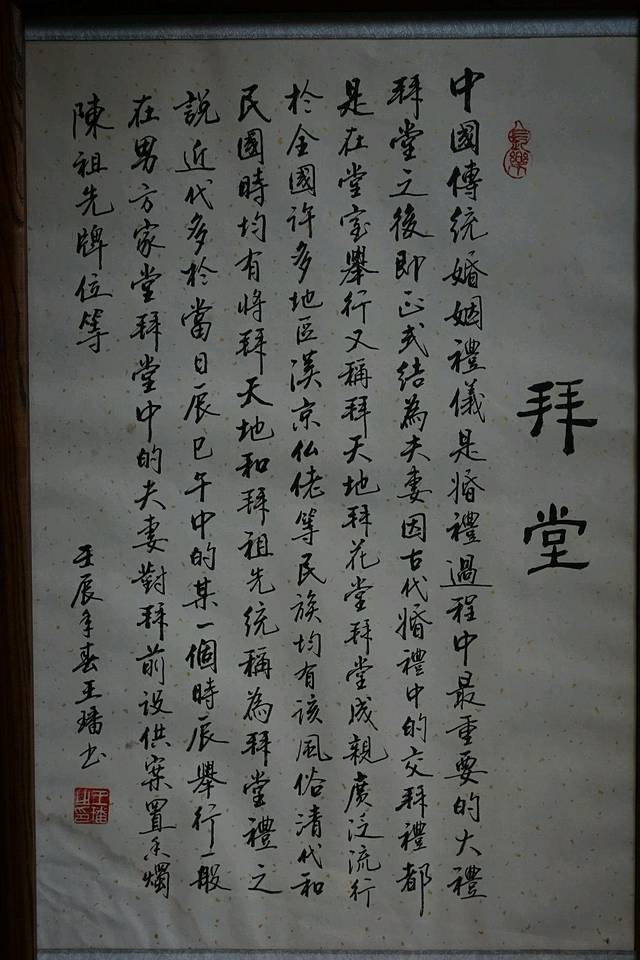 拜堂
長樂
中國傳統婚姻禮儀是婚禮過程中最重要的大禮
拜堂之後即正式結為夫妻因古代婚禮中的交拜禮都
是在堂室舉行又稱拜天地拜花堂拜堂成親廣泛流行
於全國許多地區漢京仫佬等民族均有該風俗清代和
民國時均有將拜天地和拜祖先統稱為拜堂禮之
說近代多於當日辰巳午中的某一個時辰舉行一般
在男方家堂拜堂中的夫妻對拜前設供案置香燭
陳祖先牌位等
壬辰年春王璠书